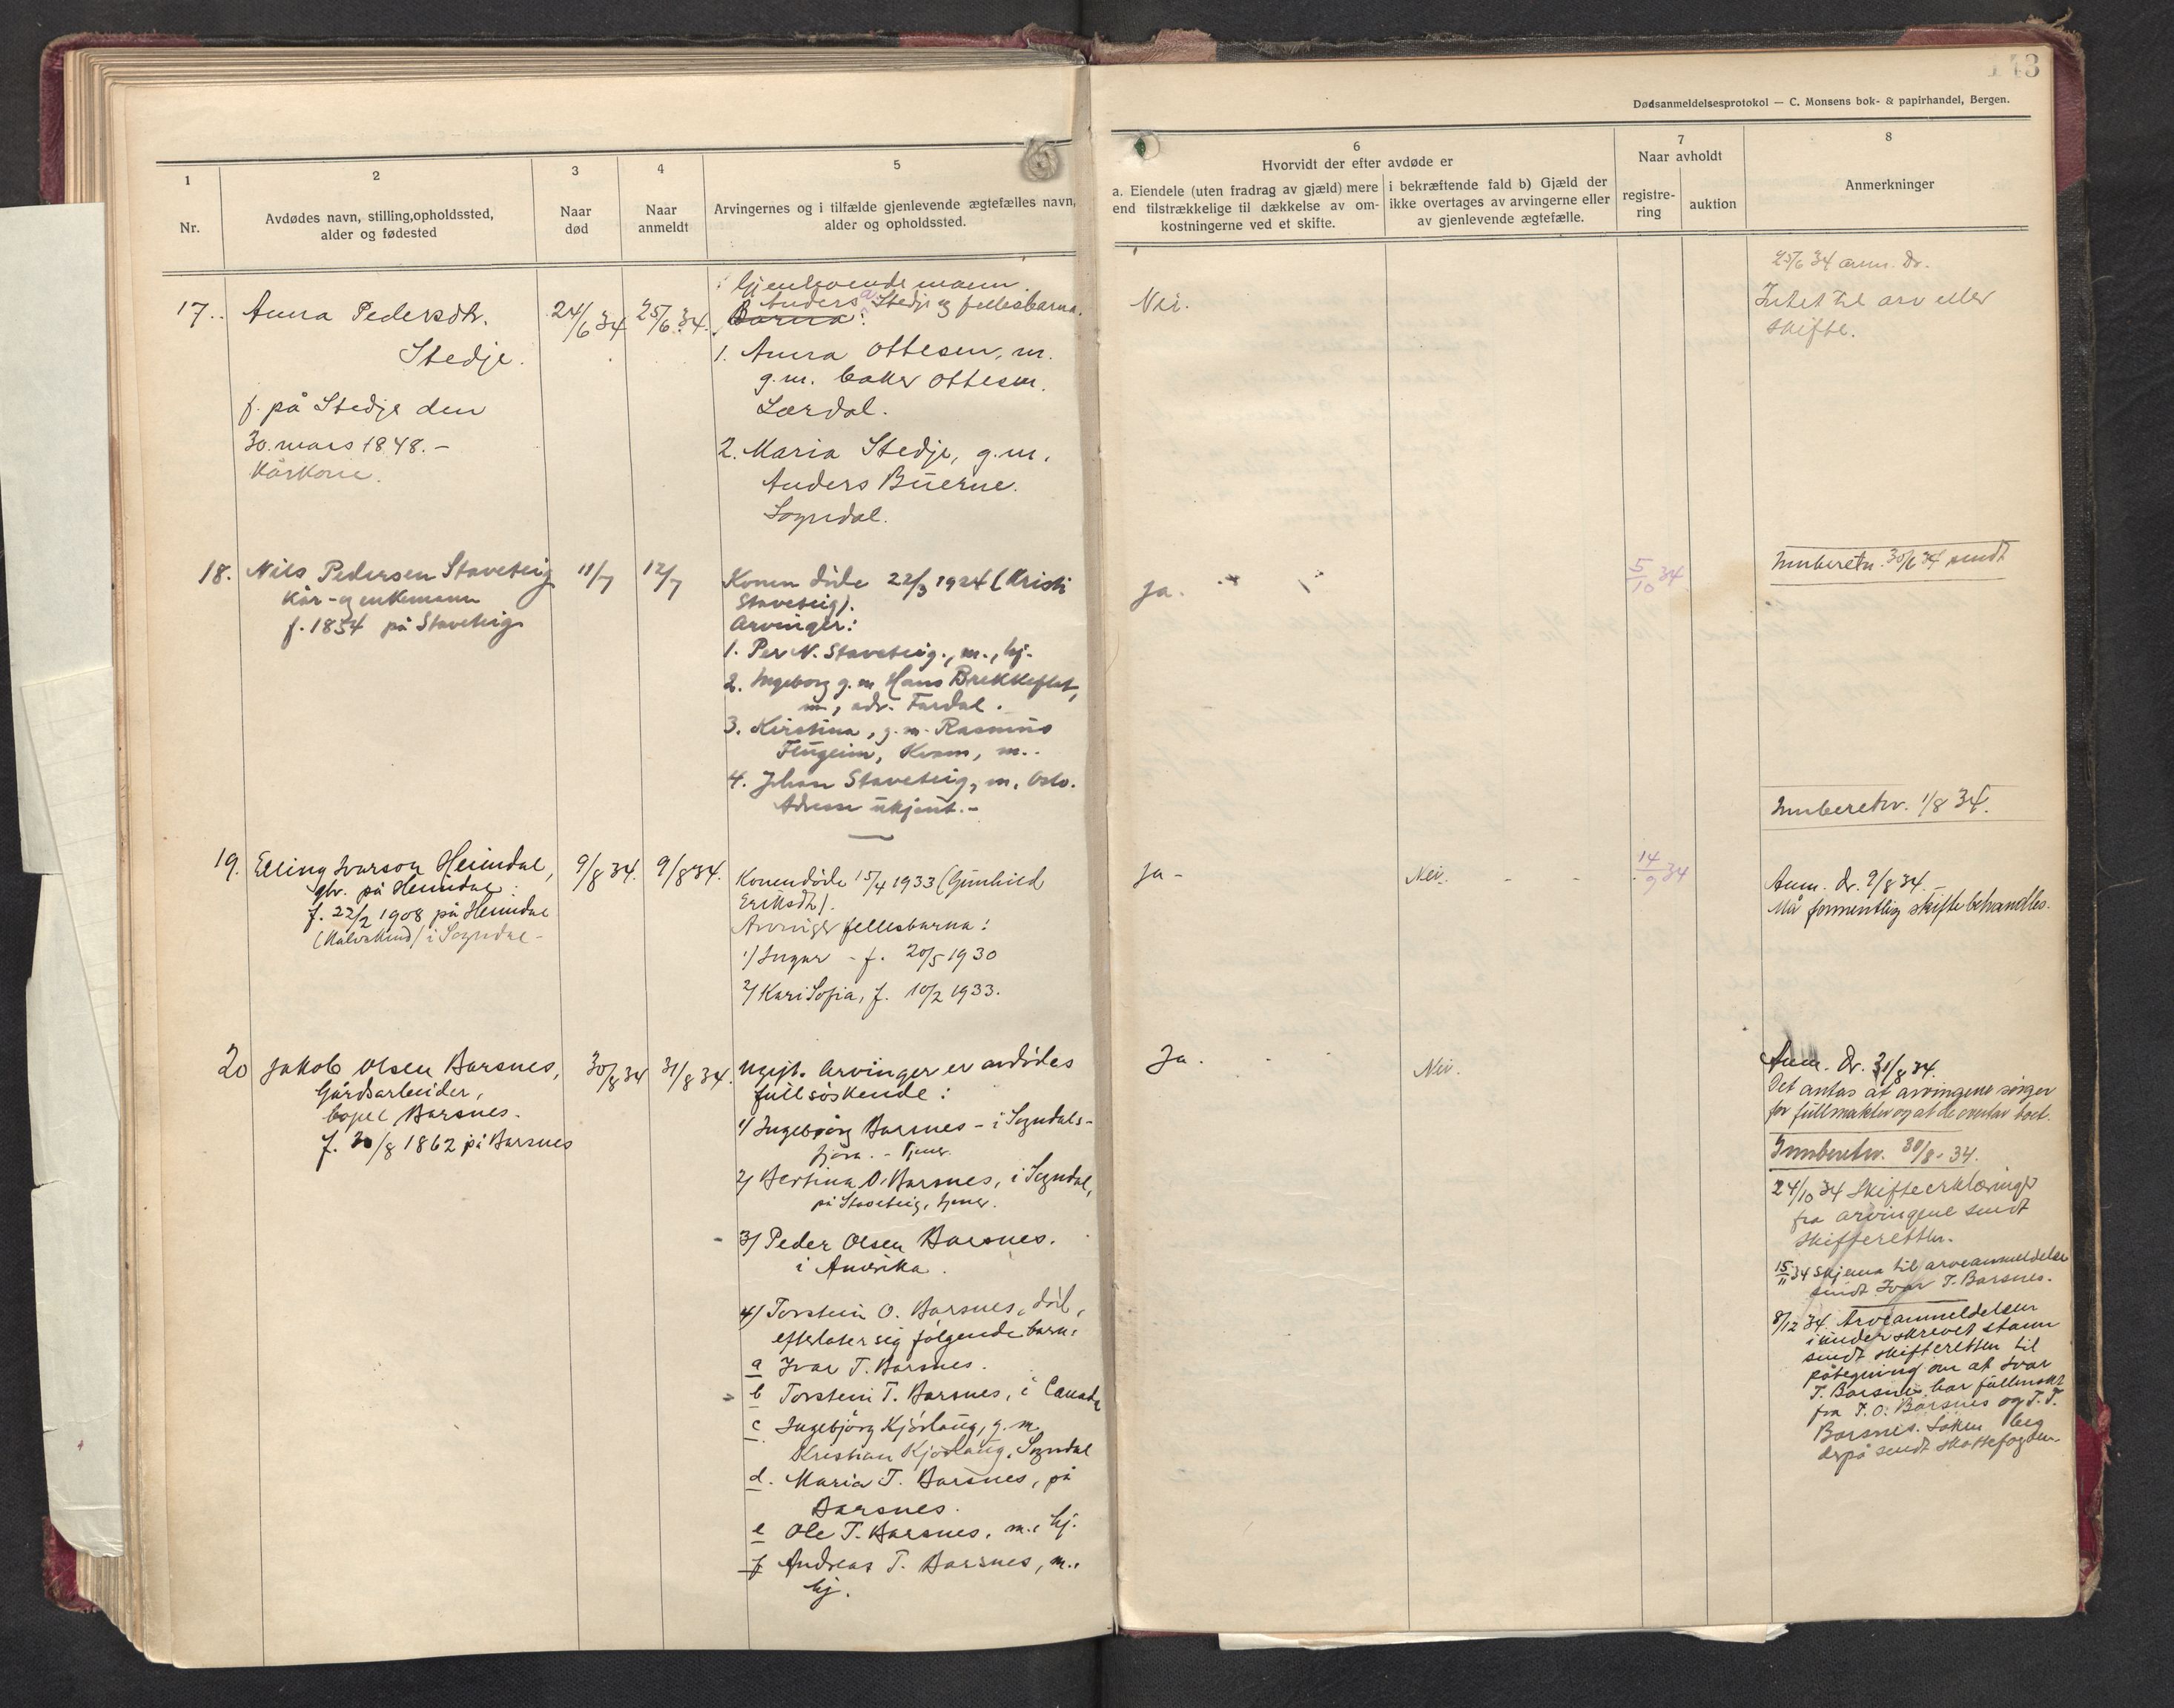 143
Dødsanmeldelsesprotokol — C. Monsens bok- & papirhandel, Bergen.
1
Nr.
2
Avdødes navn, stilling, opholdssted,
alder og fødested
3
Naar
død
4
Naar
anmeldt
5
Arvingernes og i tilfælde gjenlevende ægtefælles navn,
alder og opholdssted.
6
Hvorvidt der efter avdøde er
a. Eiendele (uten fradrag av gjæld) mere
end tilstrækkelige til dækkelse av om-
kostningerne ved et skifte.
i bekræftende fald b) Gjæld der
ikke overtages av arvingerne eller
av gjenlevende ægtefælle.
7
Naar avholdt
registre-
ring
auktion
8
Anmerkninger
17.
Anna Pedersdtr.
Stedje.
f. på Stedje den
30. mars 1848.-
Kårkone.
24/6 34
25/6 34.
Gjenlevende mann
Anders Stedje og fellesbarna.
Barna:
1. Anna Ottesen, m.
g.m. baker Ottesen.
Lærdal.
2. Maria Stedje, g.m.
Anders Buerne.
Sogndal.
Nei.
25/6 34 anm. Dr.
Intet til arv eller
skifte.
Innberetn. 30/6 34 sendt
18.
Nils Pedersen Staveteig
Kår- og enkemann
f. 1854 på Staveteig
11/7
12/7
Konen døde 22/3 1924 (Kristi
Staveteig).
Arvinger:
1. Per N. Staveteig., m., hj.
2. Ingeborg g.m. Hans Brekkeflat,
m., adr. Fardal.
3. Kirstina, g.m. Rasmus
Flugeim, Kvam, m..
4. Johan Staveteig, m. Oslo.
Adresse ukjent.-
Ja.
5/10 34
Innberetn. 1/8 34.
19.
Elling Ivarson Heimdal,
gbr. på Heimdal
f. 22/2 1908 på Heimdal
(Kalvskind) i Sogndal-
9/8 34.
9/8 34.
Konen døde 15/4 1933 (Gunhild
Eriksdtr).
Arvinger fellesbarna:
1) Ingar - f. 20/5 1930
2) Kari Sofia, f. 10/2 1933.
Ja-
Nei.
14/9 34
Anm. Dr. 9/8 34.
Må formentlig skiftebehandles.
20
Jakob Olsen Barsnes,
Gårdsarbeider,
bopel Barsnes.
f. 30/8 1862 på Barsnes
30/8 34
31/8 34.
Ugift. Arvinger er avdødes
fullsøskende:
1) Ingebjørg Barsnes - i Sogndals-
fjøra. - Tjener.
2) Bertina O. Barsnes, i Sogndal,
på Staveteig, tjener.
3) Peder Olsen Barsnes.
i Amerika.
4) Torstein O. Barsnes, død,
efterlater sig følgende barn:
a Ivar T. Barsnes.
b Torstein T. Barsnes, i Canada
c Ingebjørg Kjørlaug, g.m.
Kristian Kjørlaug, Sogndal
d. Maria T. Barsnes, på
Barsnes.
e Ole T. Barsnes. m., hj.
f Andreas T. Barsnes, m.,
hj.
Ja.
Nei.
Anm. Dr. 31/8 34.
Det antas at arvingene sørger
for fullmakter og at de overtar boet.
Innberetn. 31/8. 34.
24/10 34 Skifteerklæringer
fra arvingene sendt
skifteretten.
15/11 34 Skjema til arveanmeldelse
sendt Ivar T. Barsnes.
8/12 34. Arveanmeldelsen
i underskrevet stann
sendt skifteretten til
påtegning om at Ivar
T. Barsnes har fullmakt
fra P.O. Barsnes og T.T.
Barsnes. Saken beg
derpå sendt skattefogden.